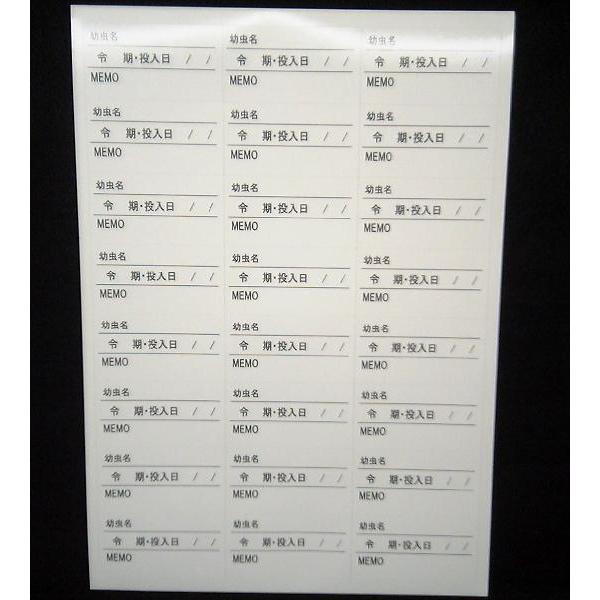 幼虫名 幼虫名 幼虫名
令 期・投入日 / / 令 期・投入日 / / 令 期・投入日 / /
MEMO MEMO MEMO
幼虫名 幼虫名 幼虫名
令 期・投入日 / / 令 期・投入日 / / 令 期・投入日 / /
MEMO MEMO MEMO
幼虫名 幼虫名 幼虫名
令 期・投入日 / / 令 期・投入日 / / 令 期・投入日 / /
MEMO MEMO MEMO
幼虫名 幼虫名 幼虫名
令 期・投入日 / / 令 期・投入日 / / 令 期・投入日 / /
MEMO MEMO MEMO
幼虫名 幼虫名 幼虫名
令 期・投入日 / / 令 期・投入日 / / 令 期・投入日 / /
MEMO MEMO MEMO
幼虫名 幼虫名 幼虫名
令 期・投入日 / / 令 期・投入日 / / 令 期・投入日 / /
MEMO MEMO MEMO
幼虫名 幼虫名 幼虫名
令 期・投入日 / / 令 期・投入日 / / 令 期・投入日 / /
MEMO MEMO MEMO
幼虫名 幼虫名 幼虫名
令 期・投入日 / / 令 期・投入日 / / 令 期・投入日 / /
MEMO MEMO MEMO